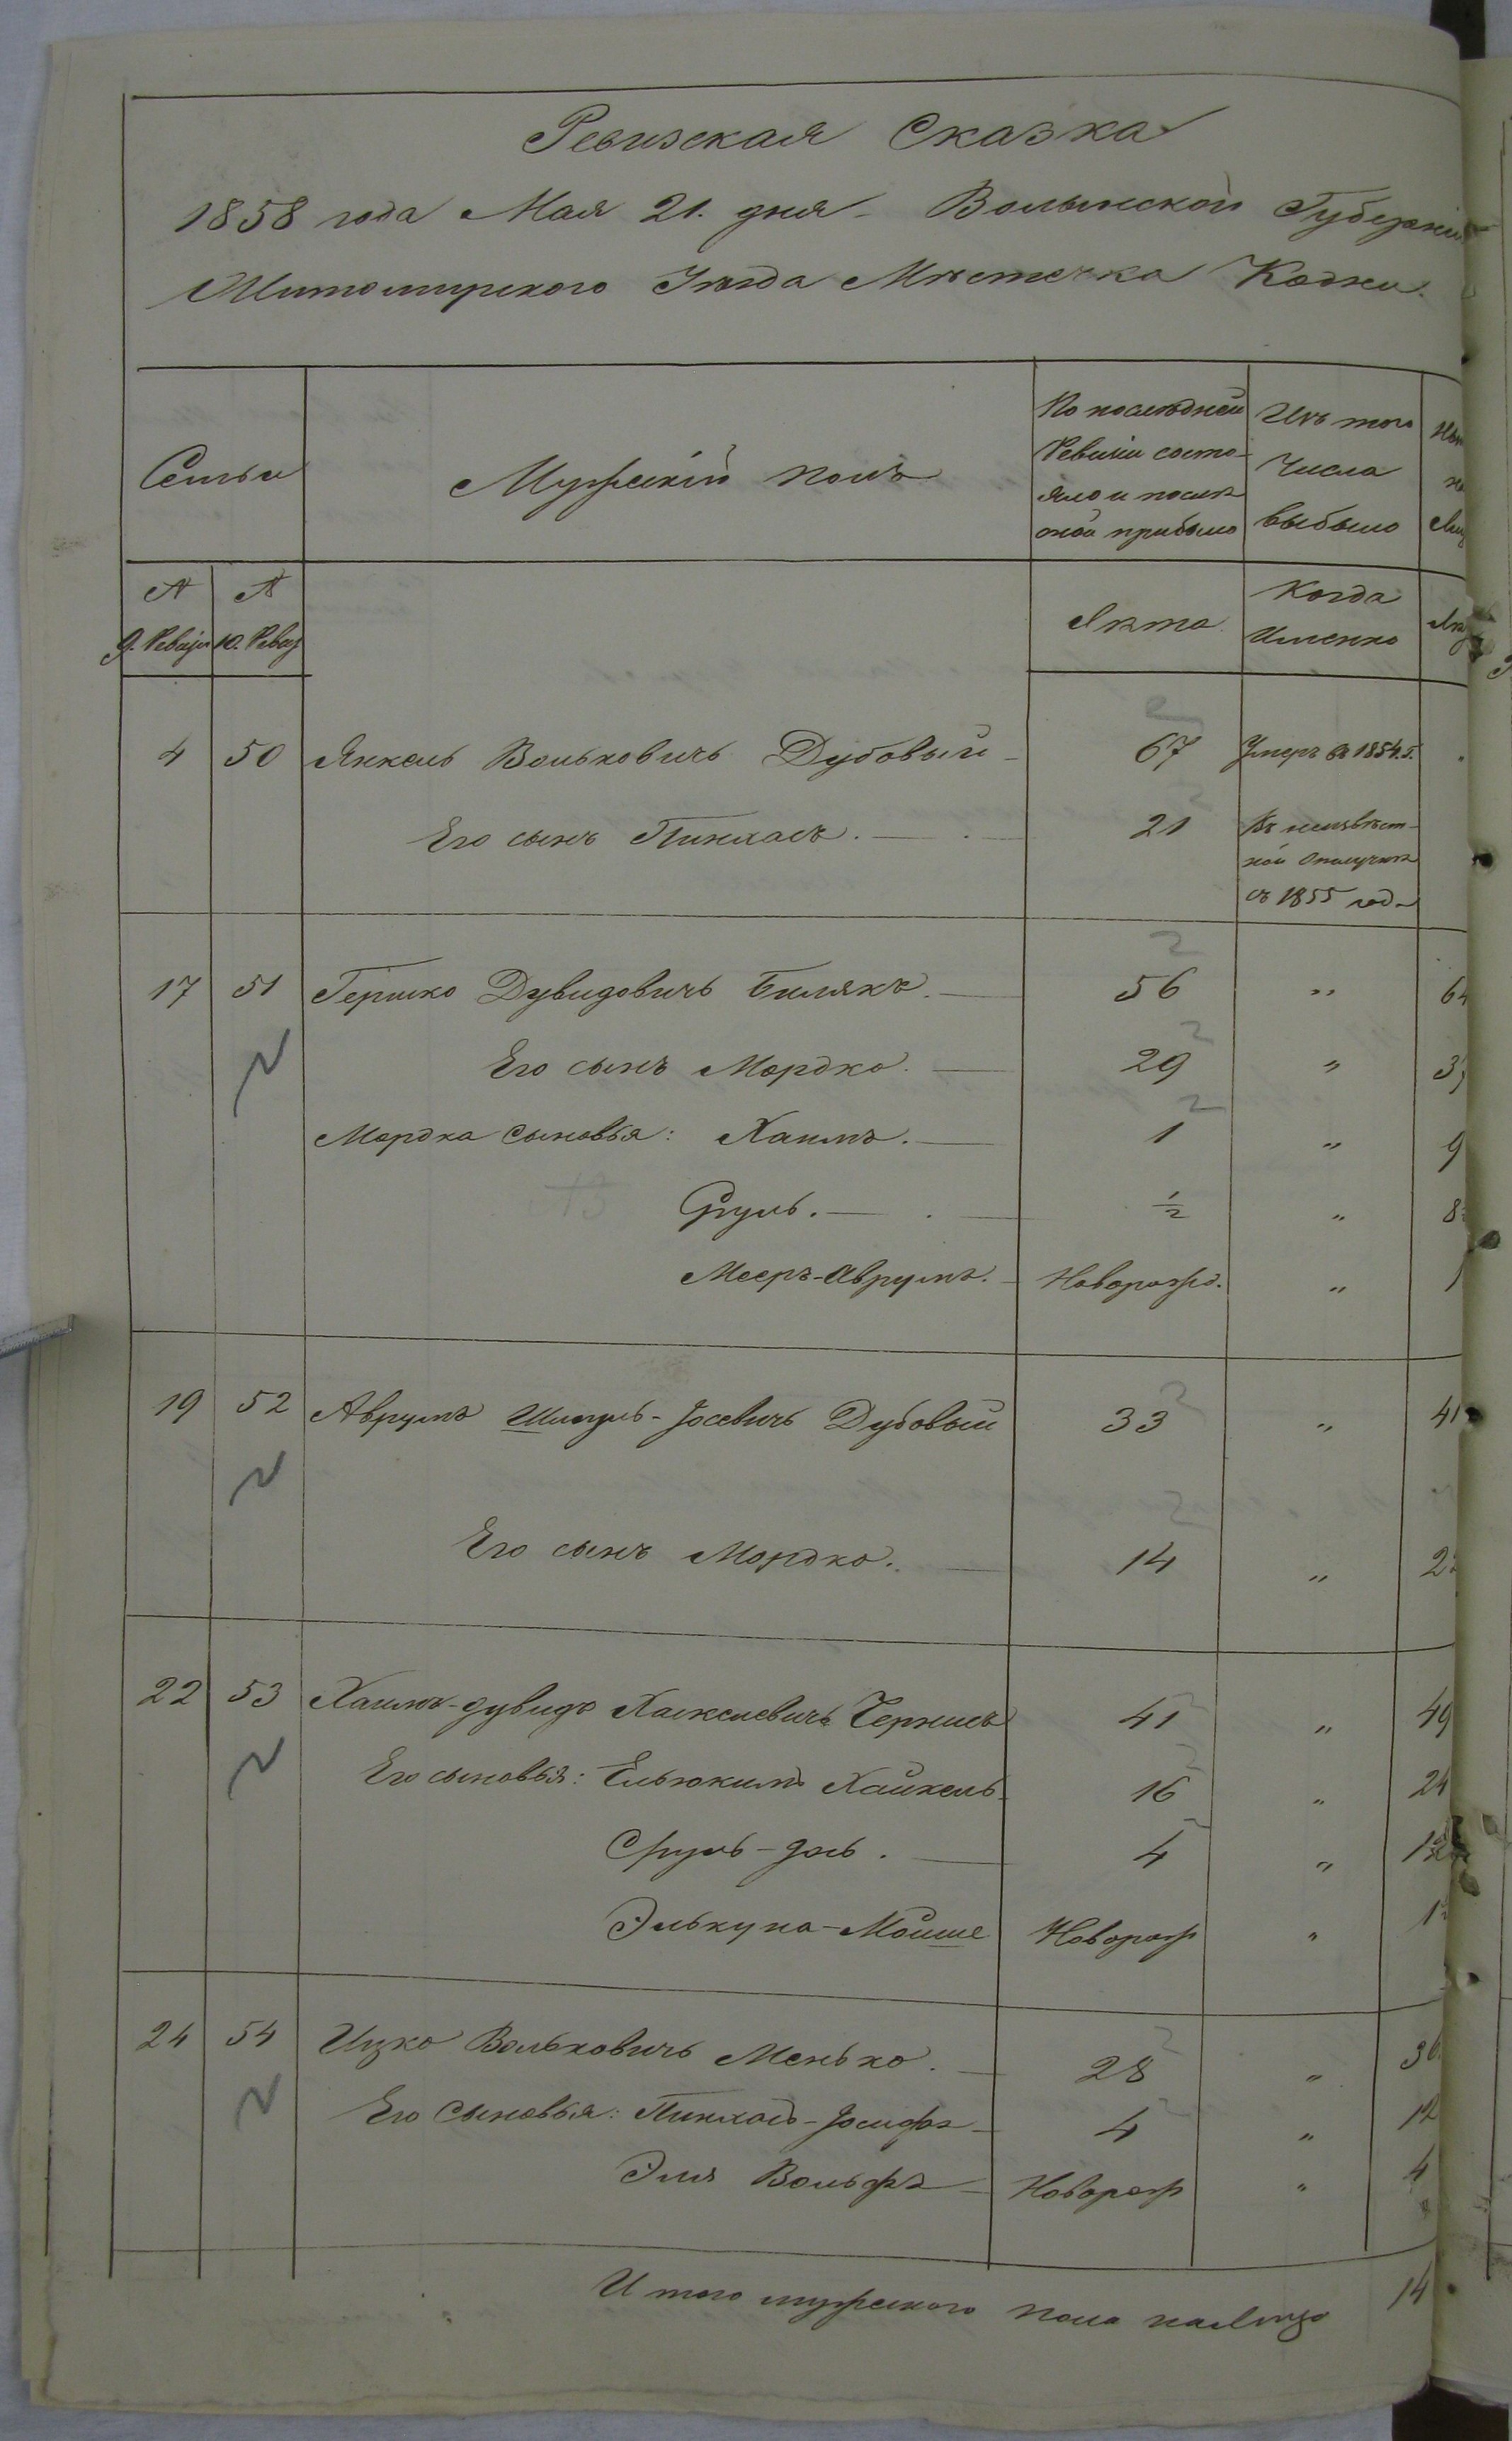 Ревизская Сказка
1858 года Мая 21. дня - Волынской Губерніи
Житомирского Уѣзда Мѣстечка Кодни.
Семьи
Мужескій полъ
По послѣдней
Ревизіи состо-
яло и послѣ
оной прибыло
Изъ того
Числа
выбыло
№ №
9. Ревизіи 10. Ревиз
Лѣта
Когда
Именно
4 50 Янкель Вольковичъ Дубовый - 67 Умеръ въ 1854. г.
Его сынъ Пинхасъ. — 21 Въ неизвѣст-
ной отлучкѣ
съ 1855 года
17 51 Гершко Дувидовичъ Билякъ. — 56 „
Его сынъ Мордко. — 29 „
Мордка сыновья: Хаимъ. — 1 „ 9
Сруль. — ½ „ 8
Мееръ-Аврумъ. - Новорожд. „ 1
19 52 Аврумъ Шмуль-Іосевичъ Дубовый 33 „ 41
Его сынъ Мордко. — 14 „ 22
22 53 Хаимъ-дувидъ Хаскелевичъ Чернисъ 41 „ 49
Его сыновья: Ельюкимъ Хаикель 16 „ 24
Сруль-Іось. — 4 „ 12
Элькуна-Моише Новорож „
24 54 Ицко Вольковичъ Менько. — 28 „ 36
Его Сыновья: Пинхасъ-Іосифъ - 4 „ 12
Эля Вольфъ - Новорож „ 4
И того мужеского пола налицо 14